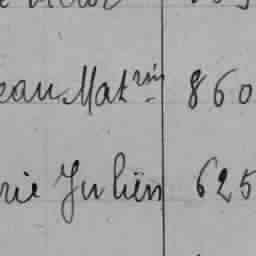 eau Mat^rin 860
rie Julien 625